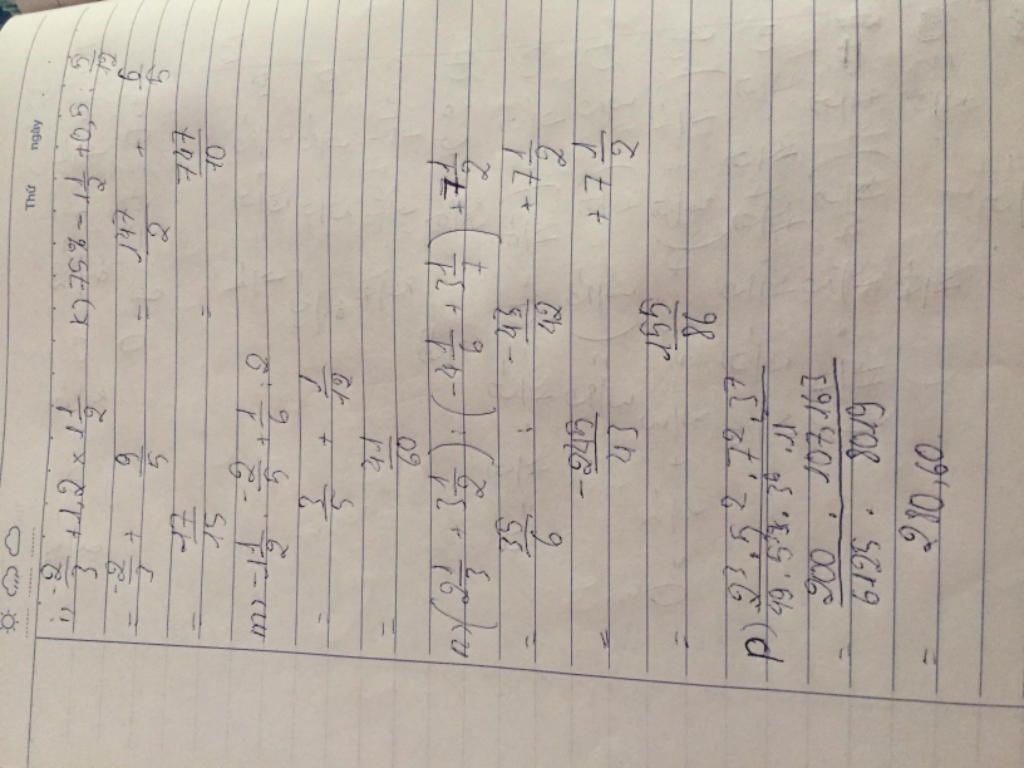 Thứ ngày
i, -2/3 + 1,2 × 1 1/2 k) 75% - 1 1/2 + 0,5 : 5/12
= -2/3 + 9/5 = 147/2 + 6/5
= 17/15 = 747/10
m - 1 1/2 . -2/5 + 1/6 : 2
= 3/5 + 1/12
= 41/60
n) (2 1/3 + 3 1/2) : (-4 1/6 + 3 1/7) + 7 1/2
= 35/6 : -43/42 + 7 1/2
= -245/43 + 7 1/2
= 155/86
p) 2^3 . 5^2 . 7^2 . 37 / 49 . 5^3 . 3^6 . 11
= 200 . 107.163 / 6125 . 8019
= 210,60